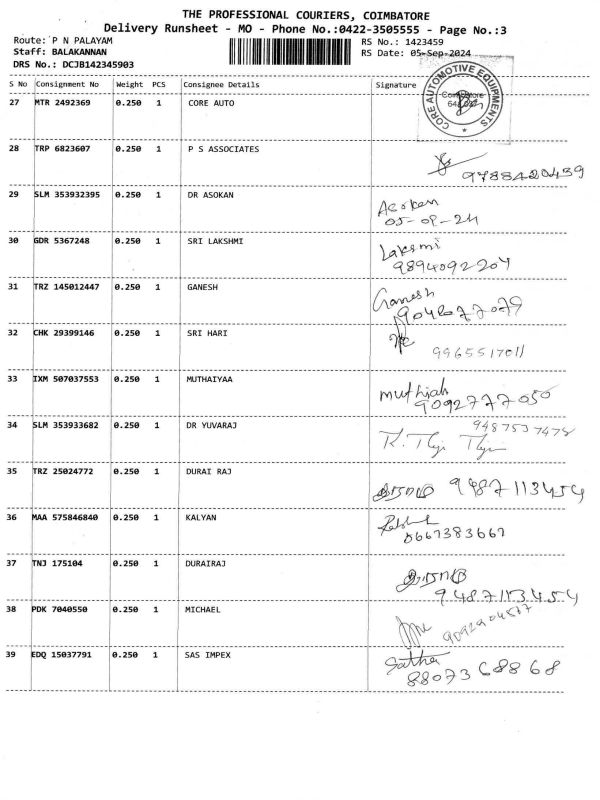 THE PROFESSIONAL COURIERS, COIMBATORE
Delivery Runsheet - MO - Phone No.:0422-3505555 - Page No.:3
Route: P N PALAYAM RS No.: 1423459
Staff: BALAKANNAN RS Date: 05-Sep-2024
DRS No.: DCJB142345903
S No Consignment No Weight PCS Consignee Details Signature
27 MTR 2492369 0.250 1 CORE AUTO
CORE AUTOMOTIVE EQUIPMENTS
Coimbatore
28 TRP 6823607 0.250 1 P S ASSOCIATES
9788420439
29 SLM 353932395 0.250 1 DR ASOKAN
Asokan
05-09-24
30 GDR 5367248 0.250 1 SRI LAKSHMI
Laksmi
9894092204
31 TRZ 145012447 0.250 1 GANESH
Ganesh
9042077079
32 CHK 29399146 0.250 1 SRI HARI
9965517011
33 IXM 507037553 0.250 1 MUTHAIYAA
muthiah
9092777050
34 SLM 353933682 0.250 1 DR YUVARAJ
9487537478
35 TRZ 25024772 0.250 1 DURAI RAJ
9487113454
36 MAA 575846840 0.250 1 KALYAN
8667383667
37 TNJ 175104 0.250 1 DURAIRAJ
9487113454
38 PDK 7040550 0.250 1 MICHAEL
39 EDQ 15037791 0.250 1 SAS IMPEX
Sathya
8807368868